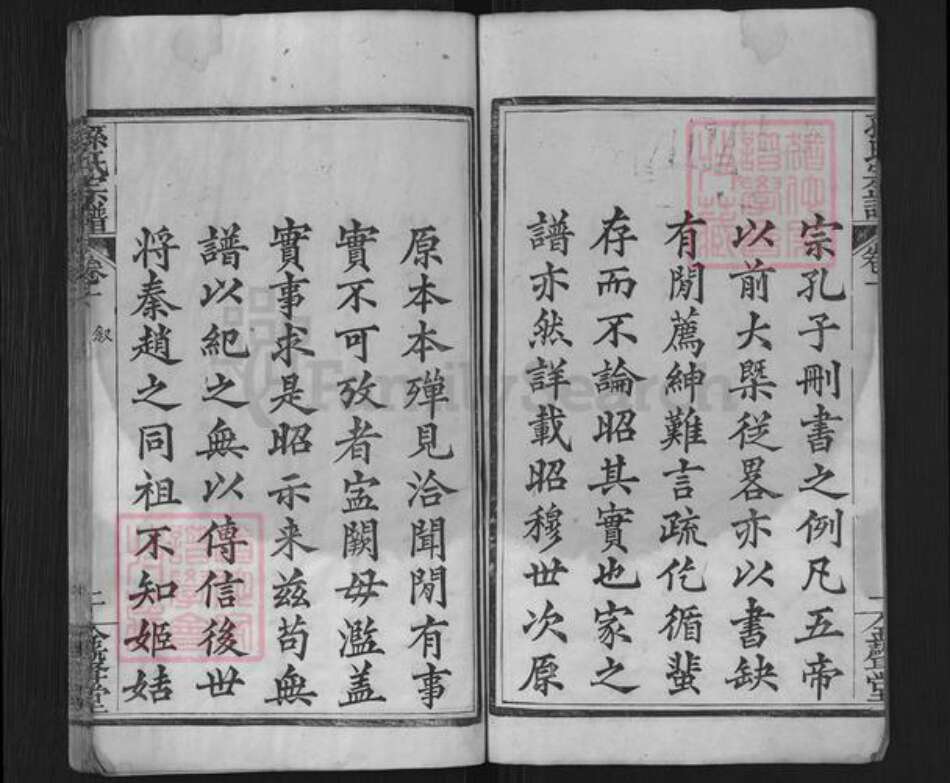 宗孔子刪書之例凡五帝
以前大槩從畧亦以書缺
有閒薦紳難言疏仡循蜚
存而不論昭其實也家之
譜亦然詳載昭穆世次原
原本本殫見洽聞閒有事
實不可攷者寍闕毋濫蓋
實事求是昭示来兹苟無
譜以紀之無以傳信後世
將秦趙之同祖不知姬姞
孫氏宗譜
卷一
叙
二
FamilySearch